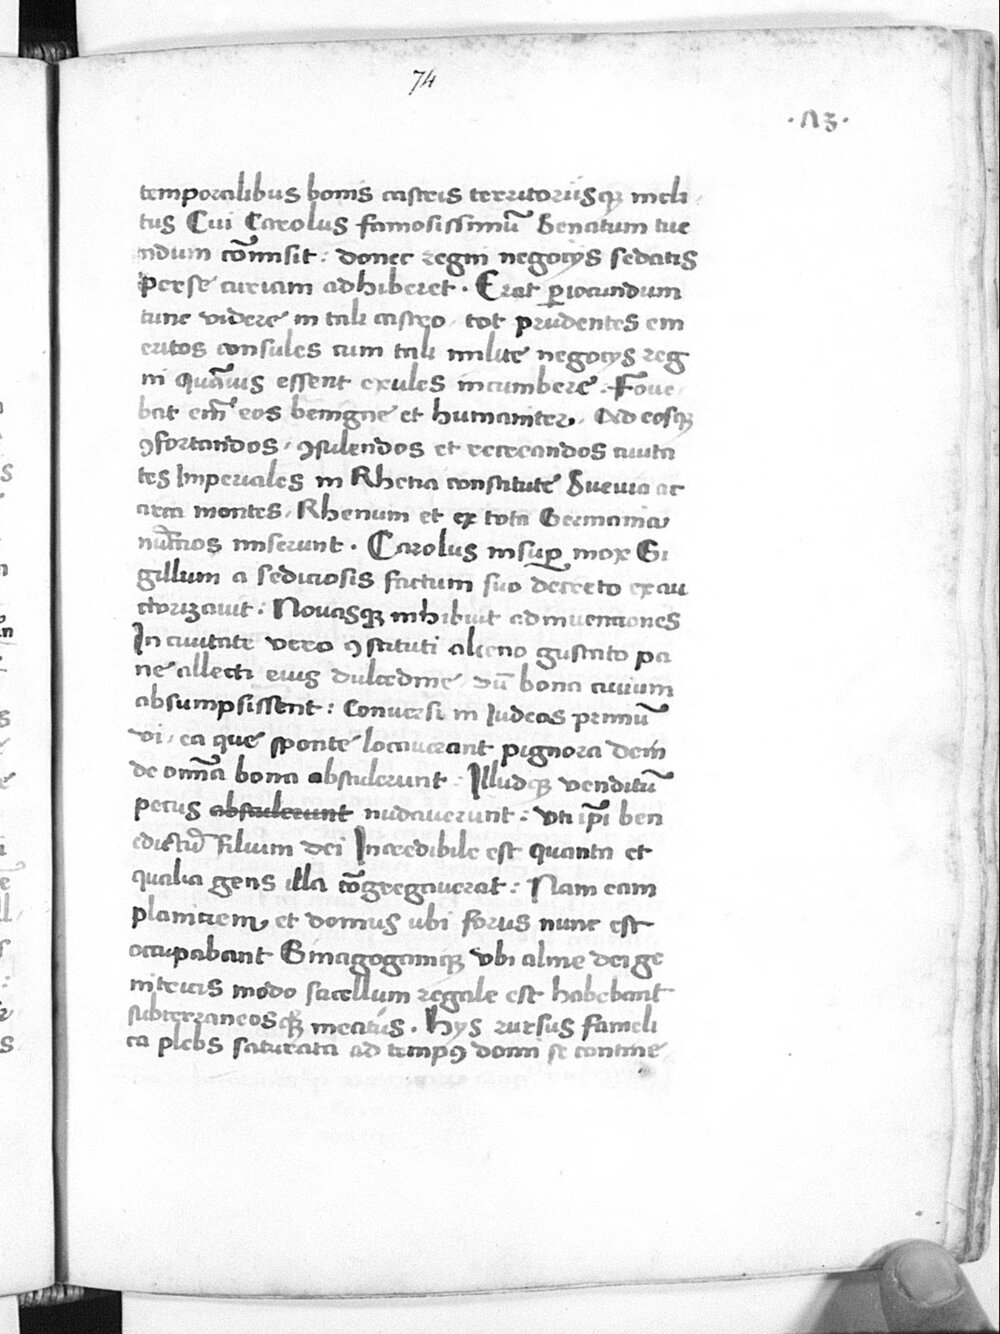 74
temporalibus bonis castris territoriisqꝫ incli
tus Cui Carolus famosissimū Senatum tue
ndum cōmisit : donec regni negocys sedatis
Per se curiam adhiberet . Erat ꝑiocundum
tunc videre in tali castro, tot prudentes em
eritos consules cum tali milite negocys reg
ni quāuis essent exules incumbere . Foue
bat em̄ eos benigne et humaniter, Ad eosqꝫ
ꝯfortandos, ꝯsulendos et recreandos ciuita
tes Imperiales in Rhetia constitute Sueuia ac
circa montes, Rhenum et ex tota Germania
nūcios miserunt . Carolus insuꝑ mox Si
gillum a sediciosis factum suo decreto exau
ctorizauit : Nouasqꝫ inhibuit adinuenciones
In ciuitate vero ꝯstituti alieno gustato pa
ne allecti eius dulcedine dū bona ciuium
absumpsissent : Conuersi in Iudeos primū
vi, ea que sponte locauerant pignora dein̄
de om̄ia bona abstulerunt : Illudqꝫ venditū
pecus abstulerunt nudauerunt : vti ip̄i ben
edictū filium dei Incredibile est quanta et
qualia gens illa cōgregauerat : Nam eam
planiciem et domus ubi forus nunc est
occupabant Sinagogamqꝫ vbi alme dei ge
nitricis modo sacellum regale est habebant
subterraneosqꝫ meatus . Hys rursus fameli
ca plebs saturata ad tempꝰ domi se contine